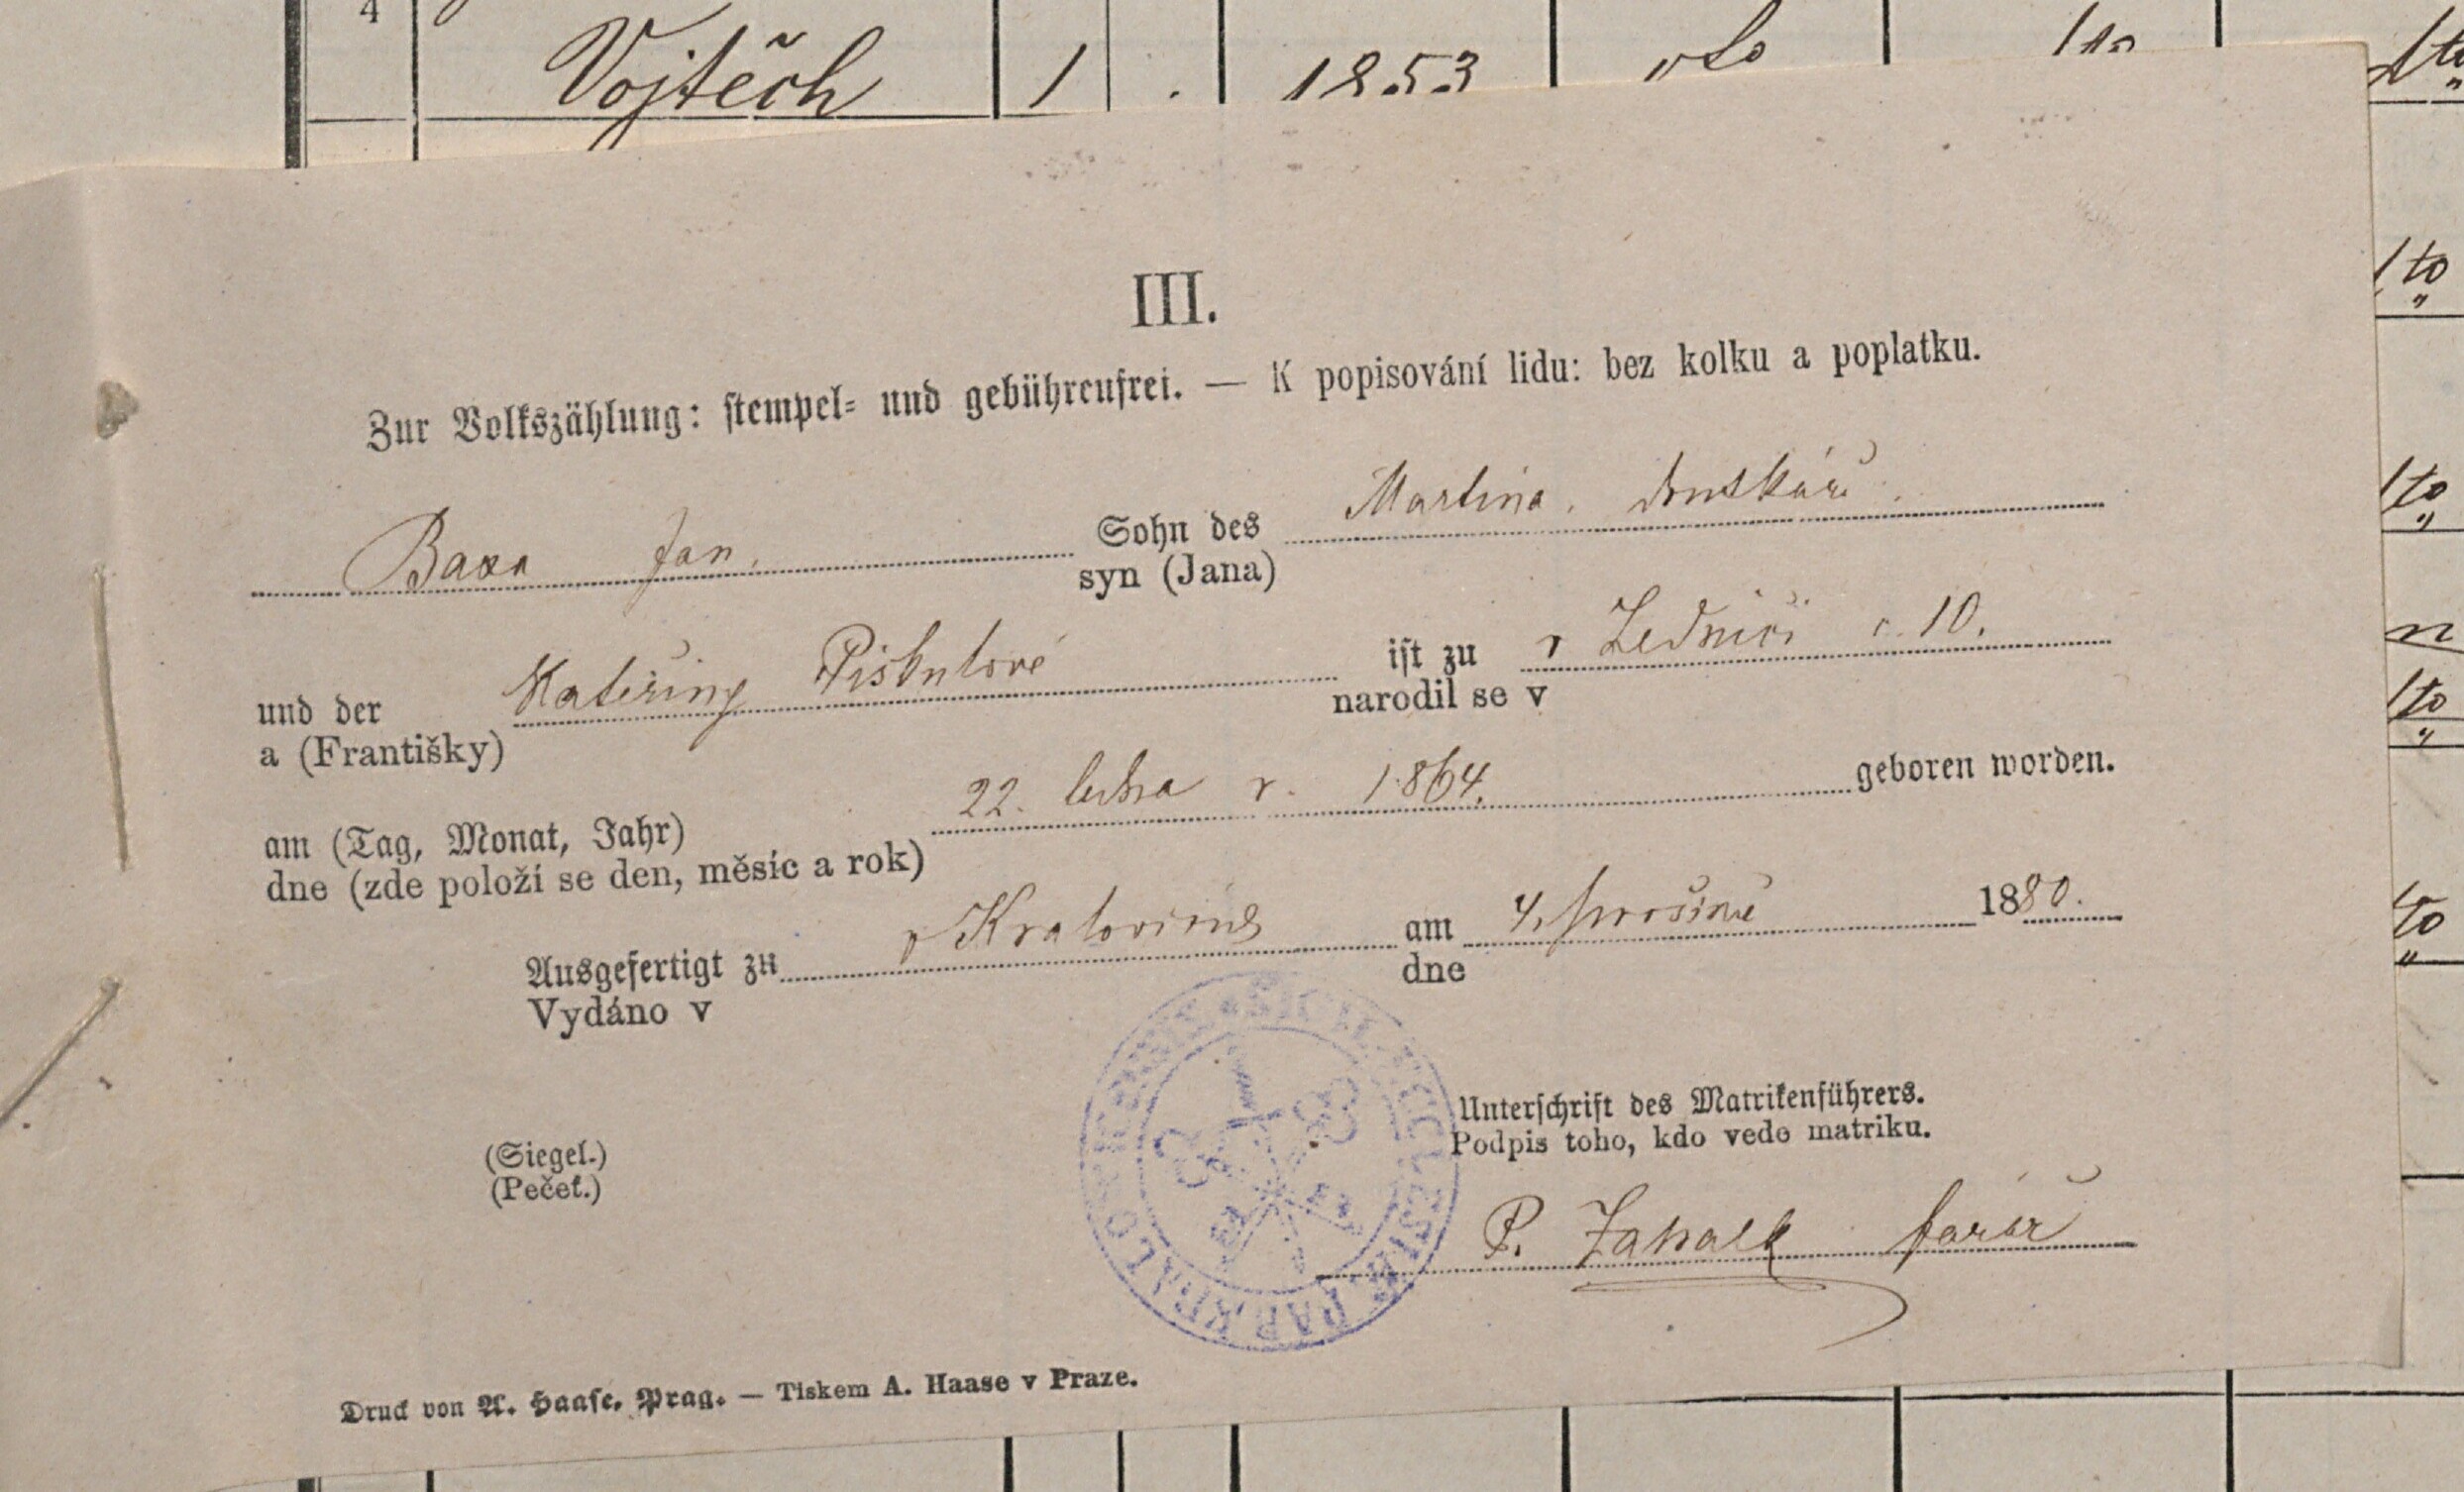 4
Vojtěch 1 . 1853 „to 1to
III.
Zur Volkszählung: stempel= und gebührenfrei. — K popisování lidu: bez kolku a poplatku.
Baxa Jan. Sohn des Martina.
syn (Jana)
und der Kateřiny Piskulové ist zu v Zednici č. 10.
a (Františky) narodil se v
am (Tag, Monat, Jahr) 22. ledna r. 1864. geboren worden.
dne (zde položí se den, měsíc a rok)
Ausgefertigt zu v am 4. prosince 1880.
Vydáno v dne
Unterschrift des Matrikenführers.
Podpis toho, kdo vede matriku.
(Siegel.)
(Pečeť.)
P. farář
Druck von A. Haase, Prag. — Tiskem A. Haase v Praze.